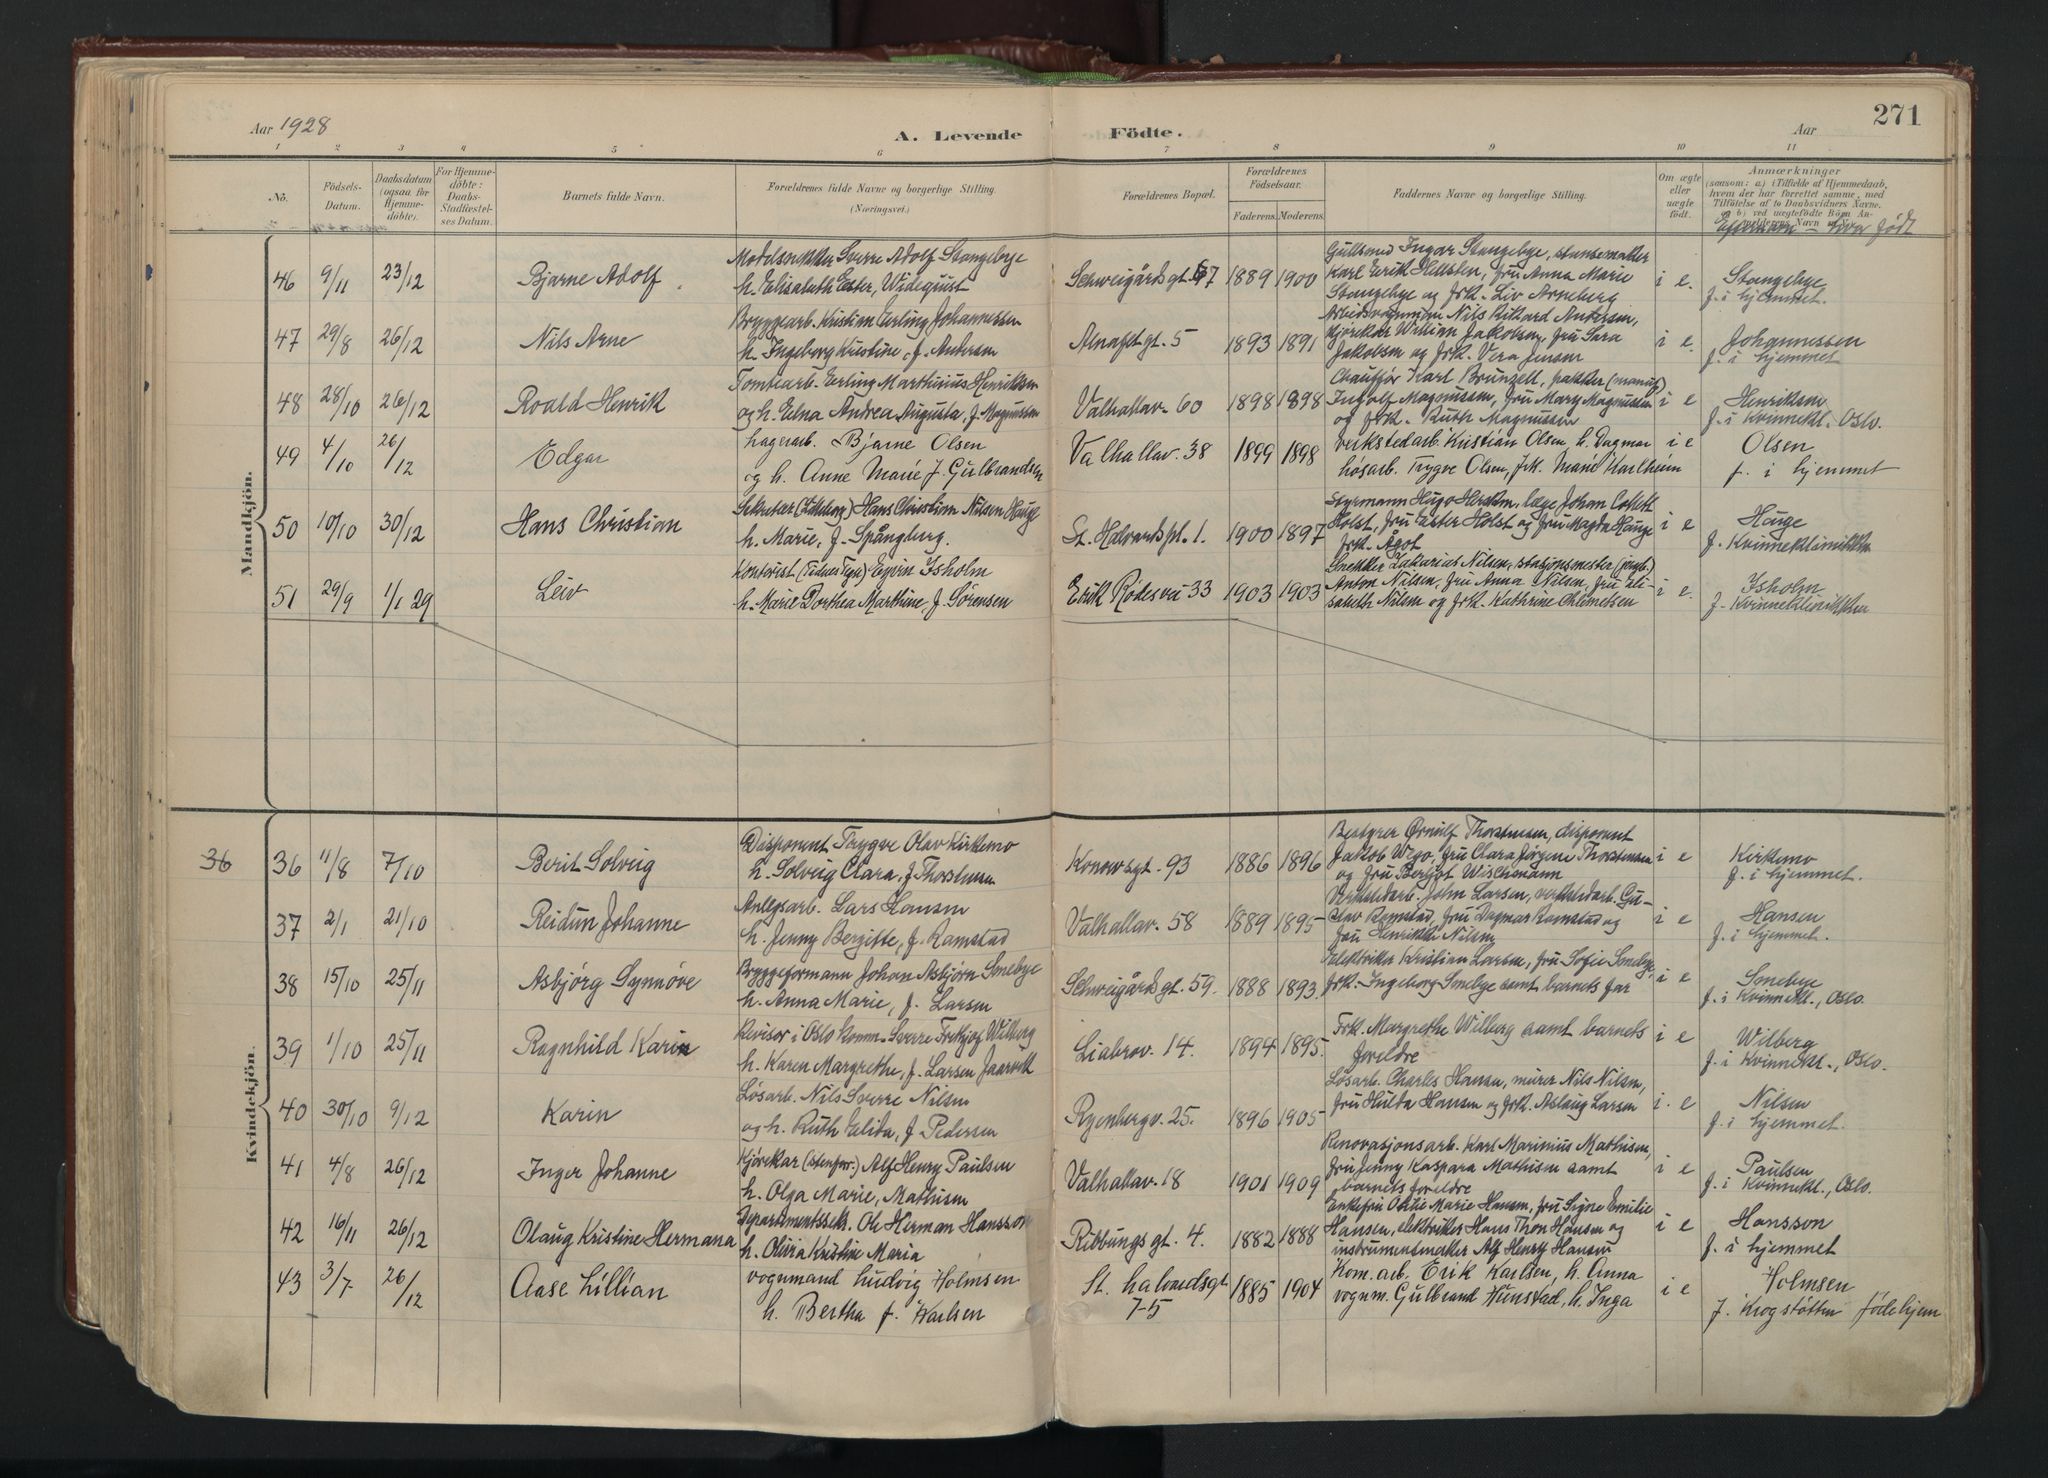 Aar 1928 A. Levende Födte. Aar 271
1 2 3 4 5 6 7 8 9 10 11
No. Födsels-Datum. Daabsdatum (ogsaa for Hjemme-döbte). For Hjemme-döbte: Daabs-Stadfæstel-ses Datum. Barnets fulde Navn. Forældrenes fulde Navne og borgerlige Stilling. (Næringsvei.) Forældrenes Bopæl. Forældrenes Födselsaar. Faderens. Moderens. Faddernes Navne og borgerlige Stilling. Om ægte eller uægte födt. Anmærkninger
(saasom: a) i Tilfælde af Hjemmedaab, hvem der har forrettet samme, med Tilföielse af to Daabsvidners Navne.
b) ved uægtefödte Börn
Efternavn - hvor født
Mandkjön.
46 9/11 23/12 Bjarne Adolf
Modelsnekker Sverre Adolf Stangebye
h. Elisabeth Ester, Widequist
Schweigårds gt. 67 1889 1900
Gullsmed Ingar Stangebye, stansemaker
Karl Erik Hellsten, fru Anna Marie
Stangebye og frk. Liv Arneberg
i e. Stangebye
f. i hjemmet.
47 29/8 26/12 Nils Arne
Bryggearb. Kristian Erling Johannessen
h. Ingeborg Kristine, f. Andersen
Alnafet gt. 5 1893 1891
Arbeidsvognmann Nils Rikard Andersen,
kjørekar William Jakobsen, fru Sara
Jakobsen og frk. Vera Jensen
i e. Johannessen
f. i hjemmet
48 28/10 26/12 Roald Henrik
Tomtearb. Erling Marthinius Henriksen
og h. Edna Andrea Augusta, f. Magnussen
Valhallav. 60 1898 1898
Chauffør Karl Brunzell, pakker
Ingolf Magnussen, fru Mary Magnussen
og frk. Ruth Magnussen
i e Henriksen
f. i Kvinnekl. Oslo.
49 4/10 26/12 Edgar
lagerarb. Bjarne Olsen
og h. Anne Marie f. Gulbrandsen
Valhallav. 38 1899 1898
verkstedarb. Kristian Olsen, h. Dagmar
løsarb. Trygve Olsen, frk. Marie Karlheim
i e Olsen
f. i hjemmet
50 10/10 30/12 Hans Christian
Sekretær Hans Christian Nilsen Hauge
h. Marie, f. Spångberg.
St. Halvards pl. 1. 1900 1897
Styrmann Hugo, læge Johan
Holst, fru Ester Holst og fru Magda Hauge
frk. Agot
i e Hauge
f. Kvinneklinikken
51 29/9 1/1 29 Leiv
Kontorist (Tidens Tegn) Eyvin Isholm
h. Marie Dorthea Marthine, f. Sørensen
Erik Rødes vei 33 1903 1903
Snekker Zakarias Nilsen, stasjonsmester
Anton Nilsen, fru Anna Nilsen, fru Eli-
sabeth Nilsen og frk. Kathrine
i e. Isholm
f. Kvinneklinikken
Kvindekjön.
36 36 11/8 7/10 Berit Solveig
Disponent Trygve Olav Kirkemo
h. Solveig Clara, f. Thorstensen
Konows gt. 93 1886 1896
Bestyrer Ørnulf Thorstensen, disponent
Jakob Wego, fru Clara Jørgene Thorstensen
og fru Bergljot Wischmann
i e Kirkemo
f. i hjemmet.
37 2/1 21/10 Reidun Johanne
Anlegsarb. Lars Hansen
h. Jenny Bergitte, f. Ramstad
Valhallav. 58 1889 1895
Verkstedarb. John Larsen, verkstedarb. Gu-
stav Ramstad, fru Dagmar Ramstad og
fru Henrikke Nilsen
i e Hansen
f. i hjemmet.
38 15/10 25/11 Asbjørg Synnøve
Bryggeformann Johan Asbjørn Smebye
h. Anna Marie, f. Larsen
Schweigårds gt. 59. 1888 1893.
Elektriker Kristian Larsen, fru Sofie Smebye,
frk. Ingeborg Smebye samt barnets far
i e Smebye
f. i Kvinnekl., Oslo.
39 1/10 25/11 Ragnhild Karin
Revisor i Oslo Komm. Sverre Wilberg
h. Karen Margrethe, f. Larsen Jaarvik
Liabrov. 14. 1894 1895.
Frk. Margrethe Wilberg samt barnets
foreldre
i e Wilberg
f. i Kvinnekl., Oslo.
40 30/10 9/12 Karin
Løsarb. Nils Sverre Nilsen
og h. Ruth Elida, f. Pedersen
Ryenbergv. 25. 1896 1905
Løsarb. Charles Hansen, murer Nils Nilsen,
fru Hulda Hansen og frk. Aslaug Larsen
i. e Nilsen
f. i hjemmet.
41 4/8 26/12 Inger Johanne
Kjørekar (stenfor.) Alf Henry Paulsen
h. Olga Marie, Mathisen
Valhallav. 18 1901 1909
Renovasjonsarb. Karl Marinius Mathisen,
fru Jenny Kaspara Mathisen samt
barnets foreldre
i e Paulsen
f. i Kvinnekl., Oslo.
42 16/11 26/12 Olaug Kristine Hermana
Departementssek. Ole Herman Hansson
h. Olivia Kristine Maria
Ribbungs gt. 4. 1882 1888
Enkefru Otilie Marie Hansen, fru Signe Emilie
Hansen, elektriker Hans Thon Hansen og
instrumentmaker Alf Henry Hansen
i e Hansson
f. i hjemmet
43 3/7 26/12 Aase Lillian
vognmand Ludvig Holmsen
h. Bertha f. Karlsen
St. halvardsgt
75 1885 1904
Kom. arb. Erik Karlsen, h. Anna
vognm. Gulbrand Kunstad, h. Inga
i e Holmsen
f. Krogstøtten fødehjem